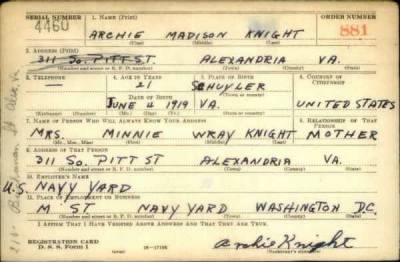 SERIAL NUMBER 1. NAME (Print) ORDER NUMBER
4460 ARCHIE MADISON KNIGHT 881
(First) (Middle) (Last)
2. ADDRESS (Print)
311 So. PITT ST. ALEXANDRIA VA.
(Number and street or R. F. D. number) (Town) (County) (State)
3. TELEPHONE 4. AGE IN YEARS 5. PLACE OF BIRTH 6. COUNTRY OF CITIZENSHIP
— 21 SCHUYLER
DATE OF BIRTH (Town or county)
JUNE 4 1919 VA. UNITED STATES
(Mo.) (Day) (Yr.) (State or country)
7. NAME OF PERSON WHO WILL ALWAYS KNOW YOUR ADDRESS 8. RELATIONSHIP OF THAT PERSON
MRS. MINNIE WRAY KNIGHT MOTHER
(Mr., Mrs., Miss) (First) (Middle) (Last)
9. ADDRESS OF THAT PERSON
311 So. PITT ST ALEXANDRIA VA.
(Number and street or R. F. D. number) (Town) (County) (State)
10. EMPLOYER'S NAME
U.S. NAVY YARD
11. PLACE OF EMPLOYMENT OR BUSINESS
M ST NAVY YARD WASHINGTON D.C.
(Number and street or R. F. D. number) (Town) (County) (State)
I AFFIRM THAT I HAVE VERIFIED ABOVE ANSWERS AND THAT THEY ARE TRUE.
REGISTRATION CARD
D. S. S. Form 1 (over) 16-17105 Archie Knight
(Registrant's signature)